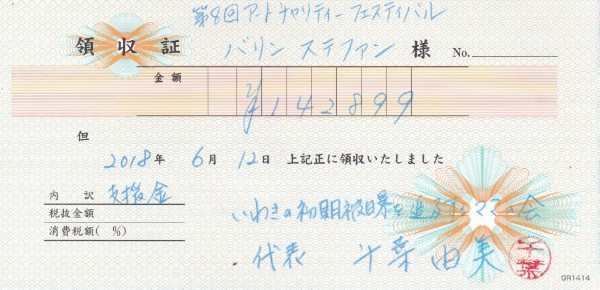 第8回アートチャリティーフェスティバル
領収証 バリン ステファン 様 No.
金額 ¥142899
但
2018年 6月 12日 上記正に領収いたしました
内訳 支援金
税抜金額
消費税額( %)
いわきの初期被曝を追及するママの会
代表 千葉由美 千葉
GR1414